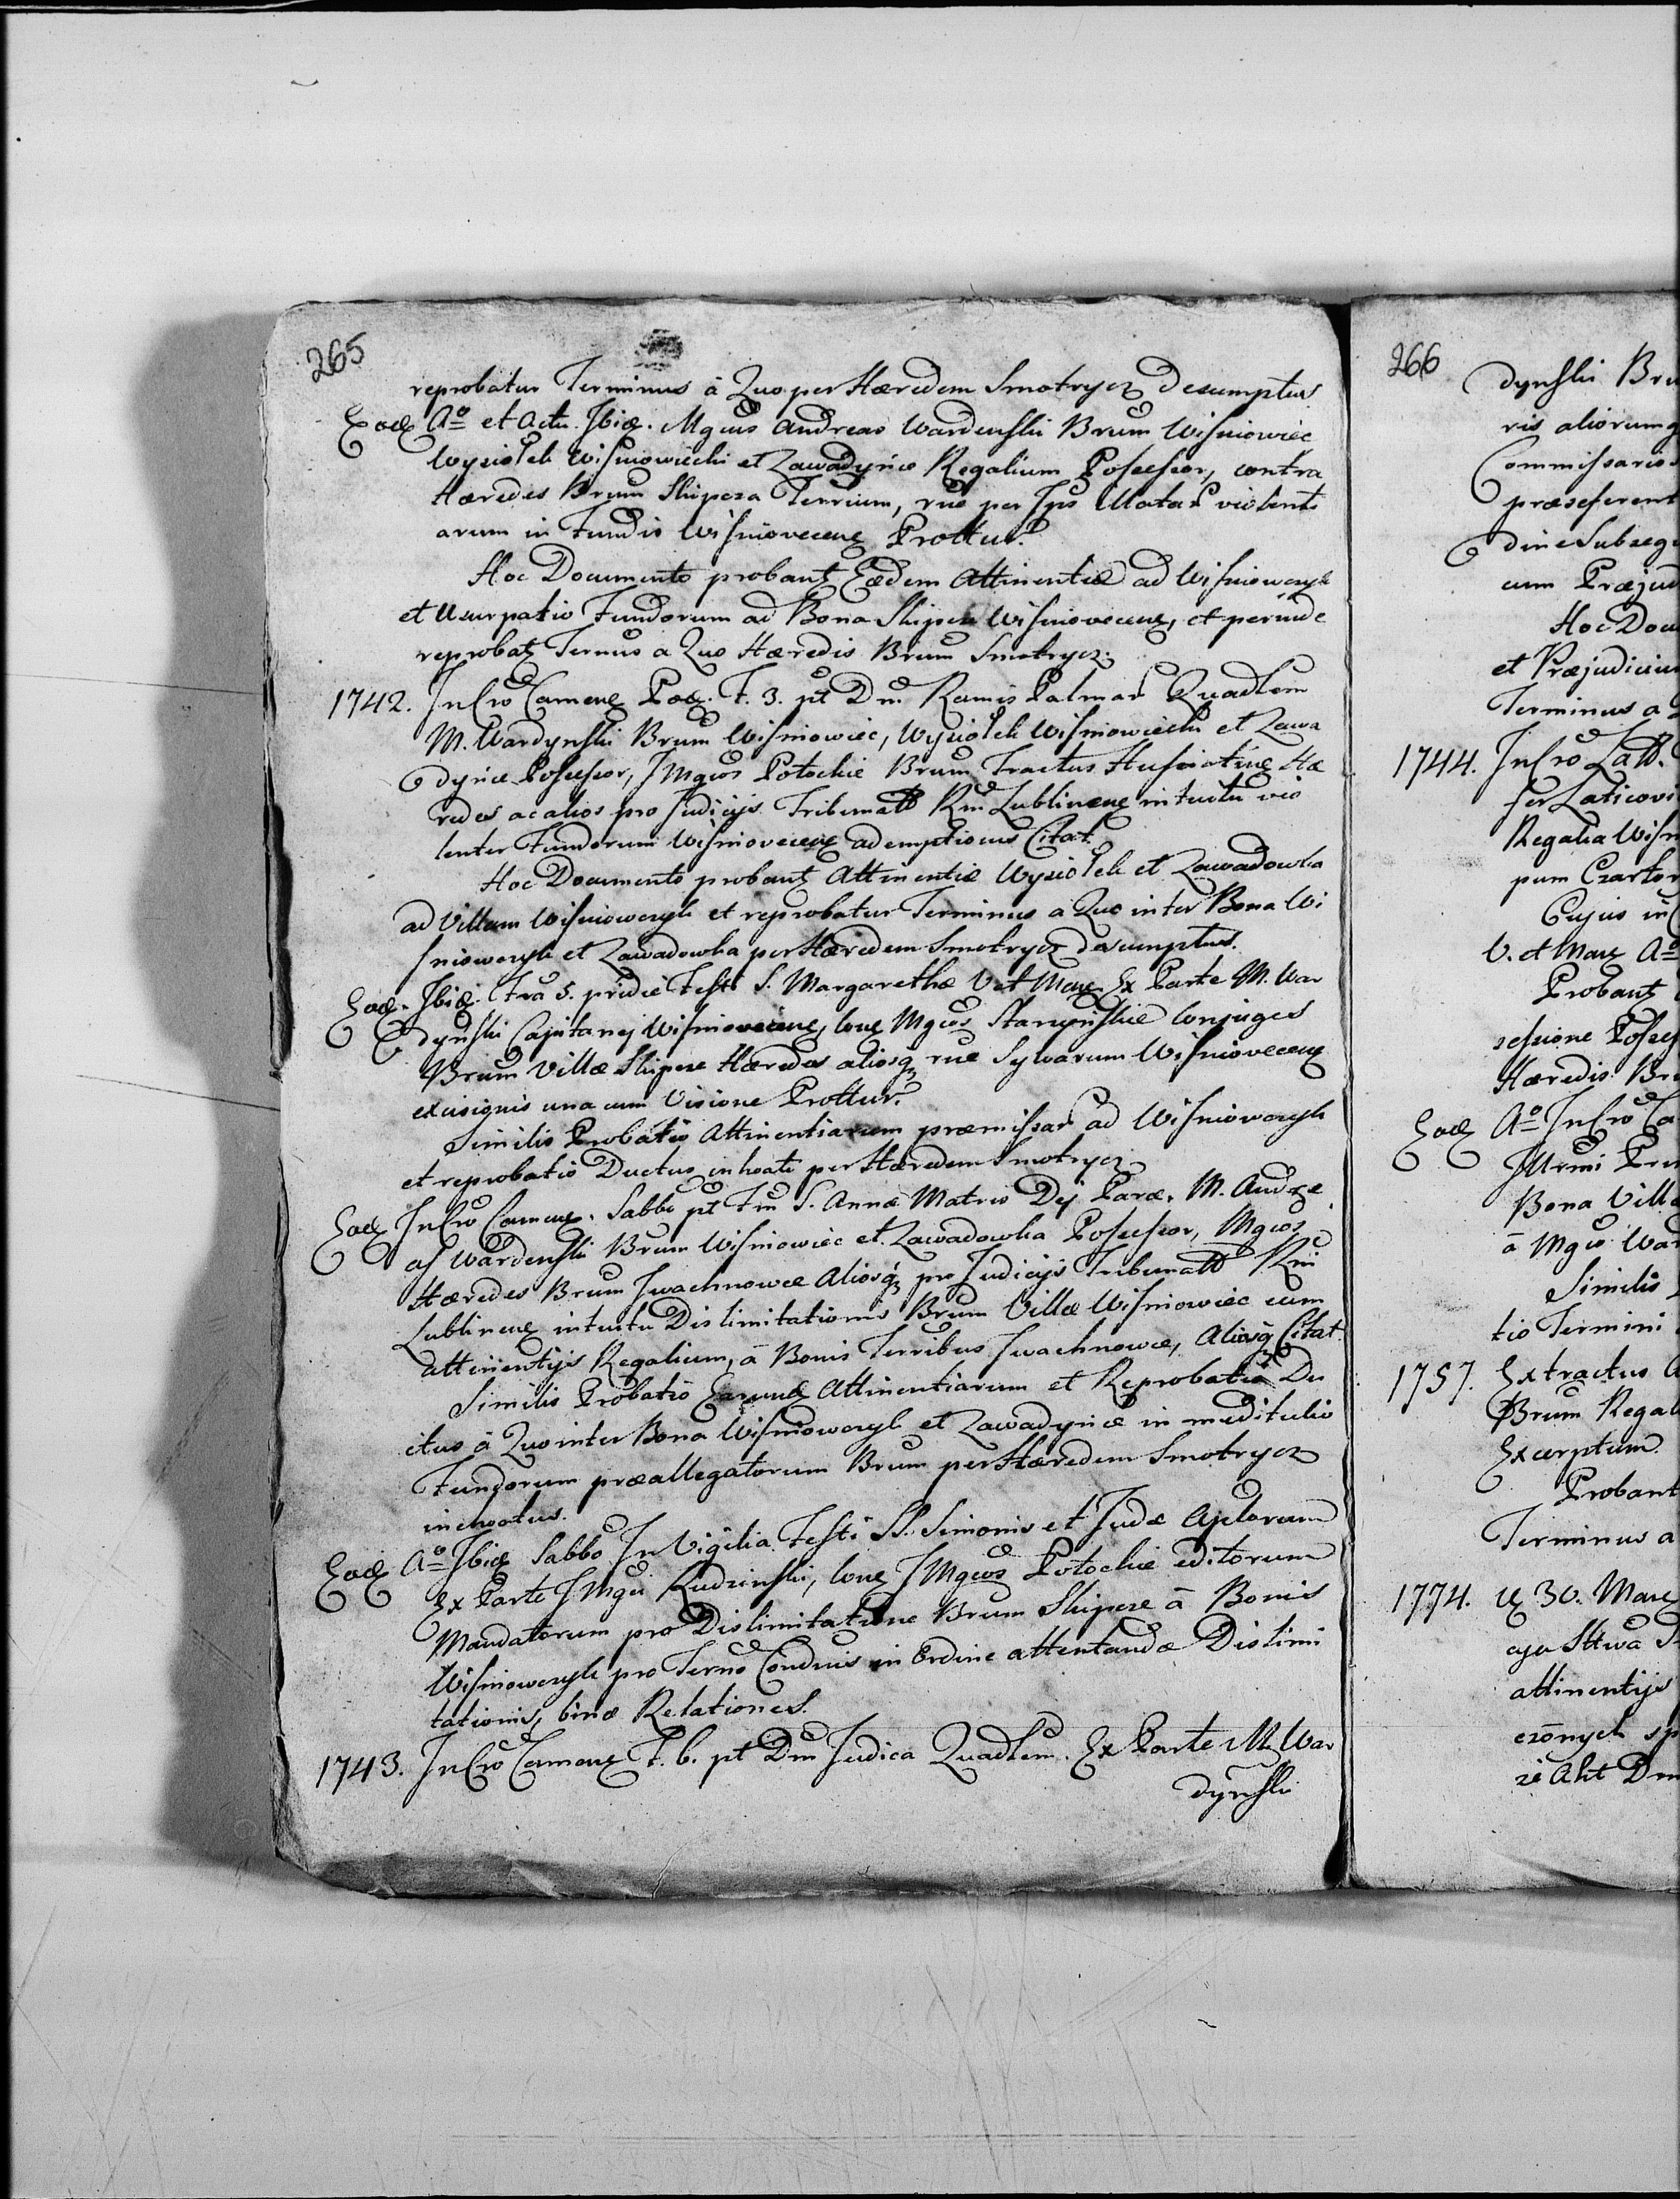 265
reprobatur Terminus à Quo per Hæredem Smotrycz desumptus
Eod. Aº et Actu Ibid. Mgcus Andreas Wardenski Brum Wisniowiec
Wysiołek Wisniowiecki et Zawadynce Regalium Possessor, contra
Hæredes Brum Skipcza Terrium, rne per Ipõs illatar violenti
arum in Fundis Wisniovecen Prottur.
Hoc Documento probant Eædem Attinentiæ ad Wisnioweczyk
et Usurpatio Fundorum ad Bona Skipcze Wisniovecen, et perinde
reprobat Ternus a Quo Hæredis Brum Smotrycz.
1742. In Cro Camene Pod. F. 3. pt Dn. Ramis Palmar Quadlem
M. Wardynski Brum Wisniowiec, Wysiołek Wisniowiecki et Zawa
dynce Possessor, IMgcos Potockie Brum Tractus Husiatine Hæ
redes ac alios pro Judicijs Tribunatt Rni Lublinen intuitu vio
lenter Fundorum Wisniovecen ademptionis Citat.
Hoc Documento probant Attinentiæ Wysiołek et Zawadowka
ad Villam Wisnioweczyk et reprobatur Terminus a Quo inter Bona Wi
snioweczyk et Zawadowka per Hæredem Smotrycz desumptus.
Eod. Ibid. Fra 5. pridie Festi S. Margarethæ V et Mar. Ex Parte M. War
dynski Capitanej Wisniovecen, cone Mgcos Starzynskie Conjuges
Brum Villæ Skipcze Hæredes aliosq rne Sylvarum Wisniovecen
excisionis una cum Visione Prottur.
Similis Probatio Attinentiarum præmissar ad Wisnioweczyk
et reprobatio Ductus inchoati per Hæredem Smotrycz.
Eod. In Cro Camene. Sabbo pt Fm S. Annæ Matris Dej Paræ. M. Andre
as Wardenski Brum Wisniowiec et Zawadowka Possessor, Mgcos
Hæredes Brum Iwachnowce Aliosq pro Judicijs Tribunatt Rni
Lublinen intuitu Dislimitationis Brum Villæ Wisniowiec cum
attinentijs Regalium, à Bonis Terribus Iwachnowce, Aliosq Citat.
Similis Probatio Earund Attinentiarum et Reprobatio Du
ctus à Quo inter Bona Wisnioweczyk et Zawadynce in meditulio
Fundorum præallegatorum Brum per Hæredem Smotrycz
inchoatus.
Eod. Aº Ibid. Sabbo In Vigilia Festi SS. Simonis et Judæ Aplorum
Ex Parte IMgci Rudzinski, cone IMgcos Potockie editorum
Mandatorum pro Dislimitatione Brum Skipcze à Bonis
Wisnioweczyk pro Terno Conduis in Ordine attentandæ Dislimi
tationis, binæ Relationes.
1743. In Cro Camene F. 6. pt Dm Judica Quadlem. Ex Parte M. War
dynski
266
dynski Bru
ris aliorumq
Commissarios
præseferent
dine Subseq
cum Præjud
Hoc Docu
et Præjudicium
Terminus a
1744. In Cro Latt.
ser Laticovi
Regalia Wisn
pum Czartor
Cujus in
V. et Mar Aº
Probant
sessione Posses
Hæredis Br
Eod. Aº In Cro Ca
Illrmi Pri
Bona Villa
à Mgco War
Similis
tio Termini
1757. Extractus
Brum Regal
Excerptum.
Probant
Terminus a
1774. 30. Mar
attinentijs